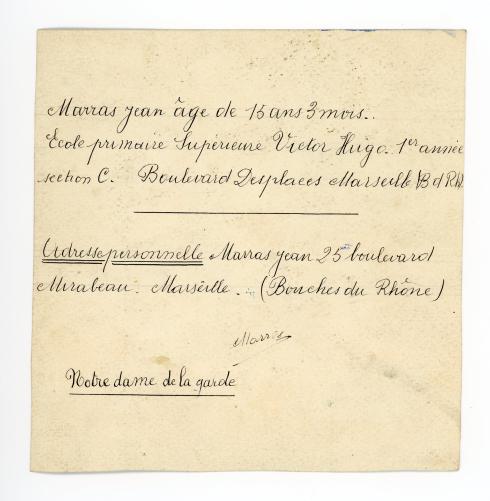 Marras jean âge de 15 ans 3 mois.
École primaire Supérieure Victor Hugo. 1er année
section C. Boulevard Desplaces Marseille (B d Rh)
Adresse personnelle Marras jean 25 boulevard
Mirabeau. Marseille. (Bouches du Rhône)
Marras
Notre dame de la garde